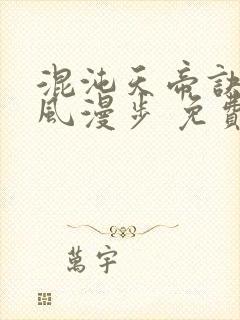 混沌天帝訣
風漫步 免費
萬宇